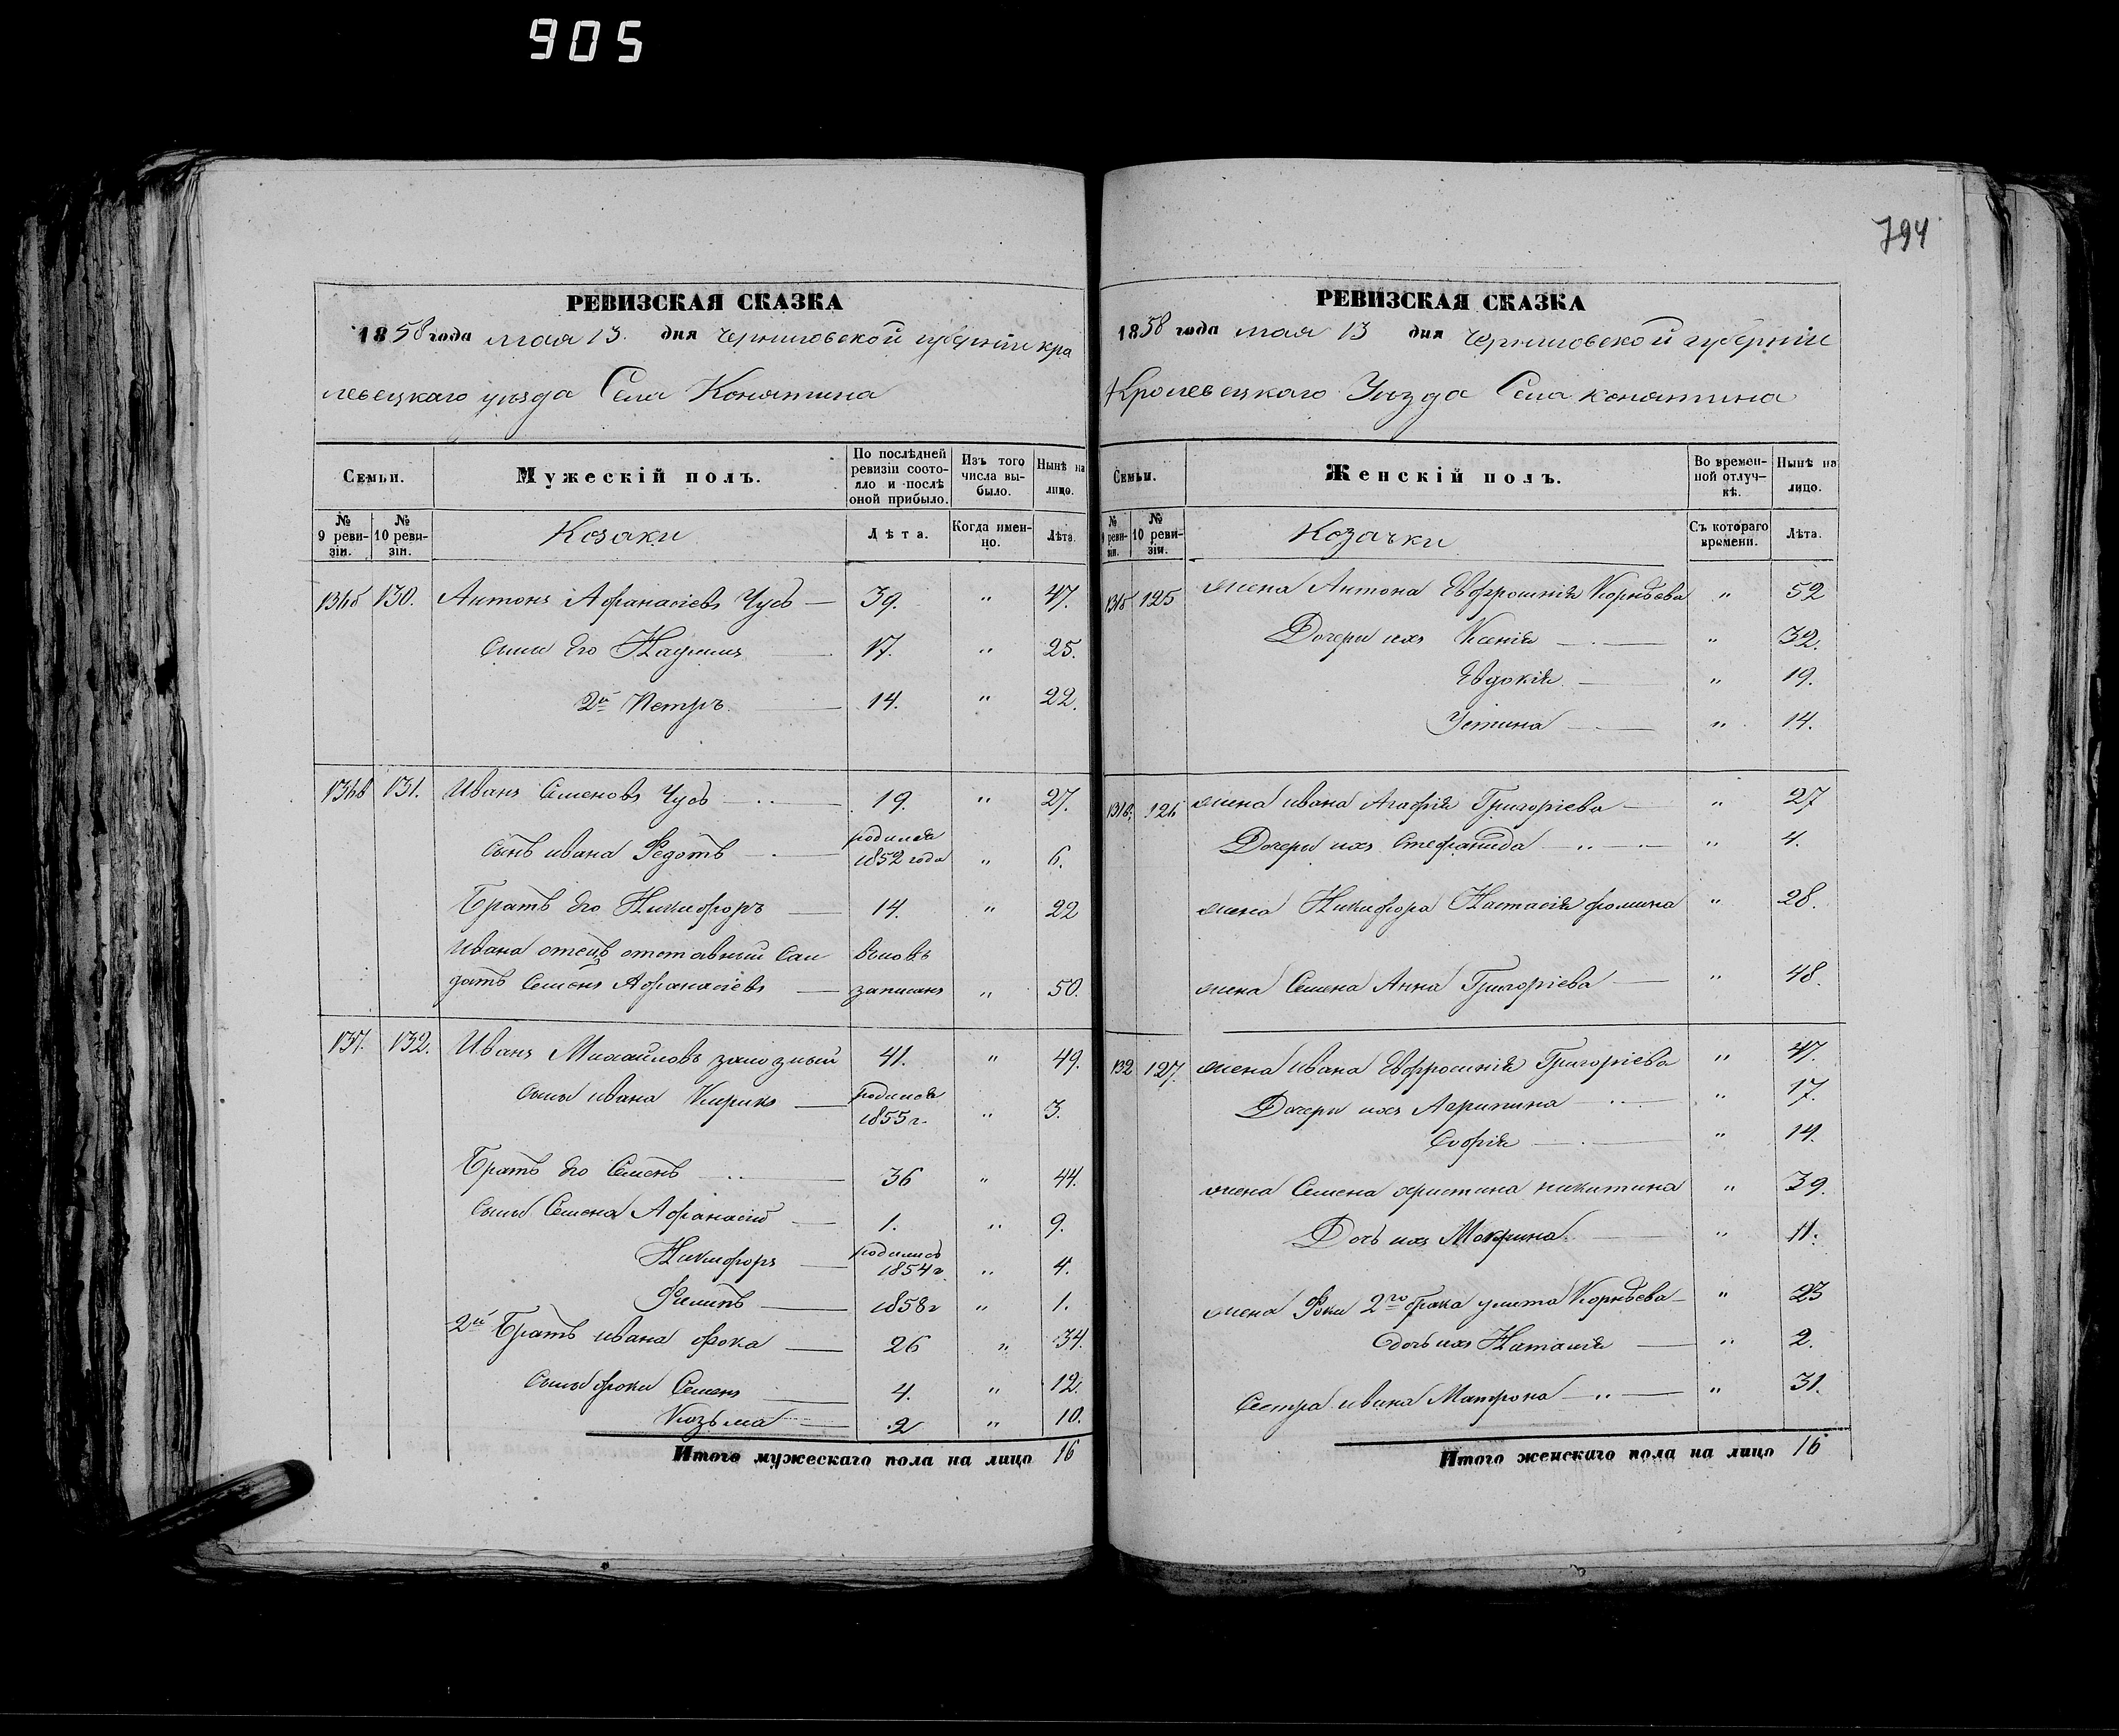 905
794
РЕВИЗСКАЯ СКАЗКА
1858 года мая 13. дня Черниговской губерніи кра
левецкаго уѣзда Села Конятина
Семьи.
Мужескій полъ.
По послѣдней ревизіи состояло и послѣ оной прибыло.
Изъ того числа выбыло.
Нынѣ на лицо.
№ 9 ревизіи.
№ 10 ревизіи.
Козаки
Лѣта.
Когда именно.
Лѣта.
130. Антонъ Афанасіевъ Чусь — 39. " 47.
Сыны Его Наумъ — 17. " 25.
2й Петръ. — 14. " 22.
131. Иванъ Семеновъ Чусь — 19. " 27.
Сынъ ивана Федотъ — родился
1852 года " 6.
Братъ Его Никифоръ — 14. " 22
Ивана отецъ отставный Сал вновь
датъ Семенъ Афанасіевъ — записанъ " 50.
137. 132. Иванъ Михайловъ 41. " 49.
Сыны ивана Кирикъ — родился
1855 г. " 3.
Братъ Его Семенъ — 36 " 44.
Сыны Семена Афанасій — 1. " 9.
Никифоръ — родились
1854 г. " 4.
Филипъ — 1858 г " 1.
2й Братъ ивана фока — 26 " 34.
Сыны фоки Семенъ — 4. " 12.
Козьма — 2 " 10.
Итого мужескаго пола на лицо 16
РЕВИЗСКАЯ СКАЗКА
1858 года мая 13 дня Черниговской губерніи
Кролевецкаго Уѣзда Села конятина
Семьи.
Женскій полъ.
Во временной отлучкѣ.
Нынѣ на лицо.
№ 9 ревизіи.
№ 10 ревизіи.
Козачки
Съ котораго времени.
Лѣта.
125 жена Антона Евфросинія Корнѣева " 52
Дочери ихъ Ксенія — " 32.
Евдокія — " 19.
Устина — " 14.
126 жена ивана Агафія Григоріева — " 27
Дочери ихъ Стефанида — " 4.
жена Никифора Настасія фомина " 28.
жена Семена Анна Григоріева — " 48.
132 127. жена ивана Евфросинія Григоріева " 47.
Дочери ихъ Агрипина — " 17.
Софія — " 14.
жена Семена христина никитина " 39.
Дочь ихъ Мокрина. — " 11.
жена Фоки 2го брака улита Корнѣева — " 23
дочь ихъ Наталія — " 2.
Сестра ивана Матрона — " 31.
Итого женскаго пола на лицо 16